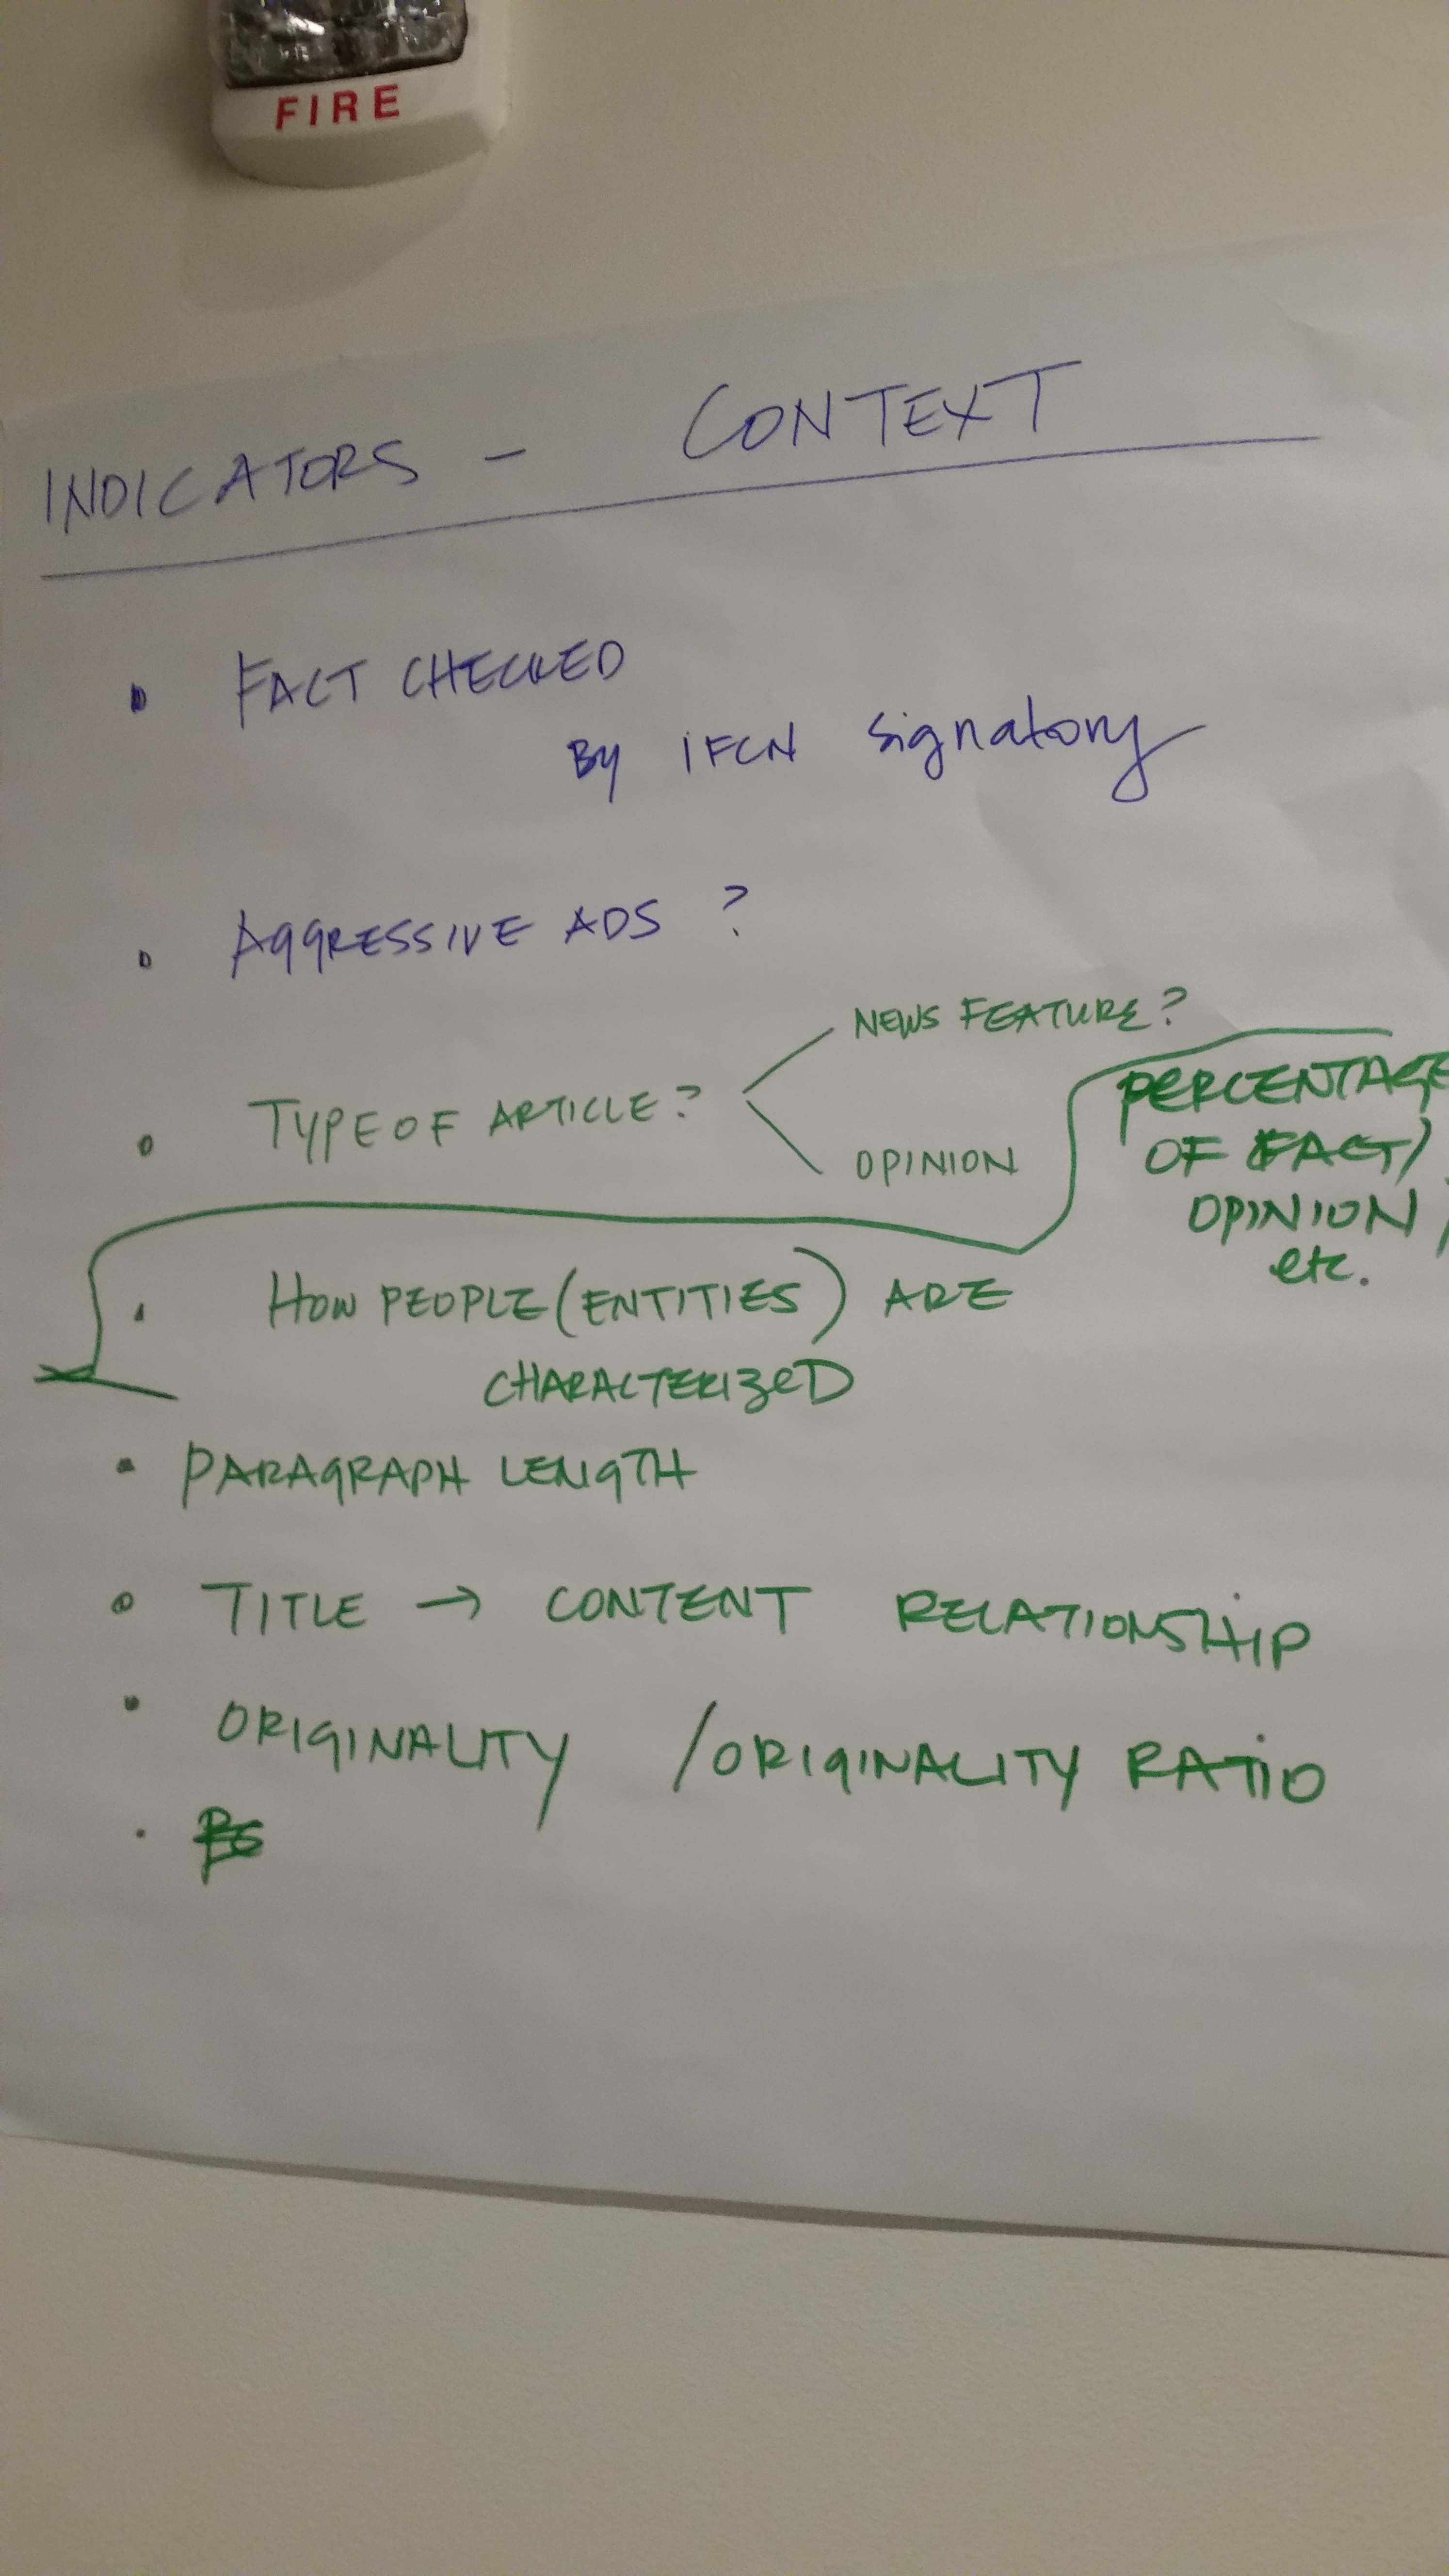 FIRE
INDICATORS - CONTEXT
• FACT CHECKED
BY IFCN signatory
• AGGRESSIVE ADS ?
NEWS FEATURE?
• TYPE OF ARTICLE?
OPINION
PERCENTAGE
OF FACT/
OPINION,
etc.
• HOW PEOPLE (ENTITIES) ARE
CHARACTERIZED
• PARAGRAPH LENGTH
• TITLE → CONTENT RELATIONSHIP
• ORIGINALITY / ORIGINALITY RATIO
•